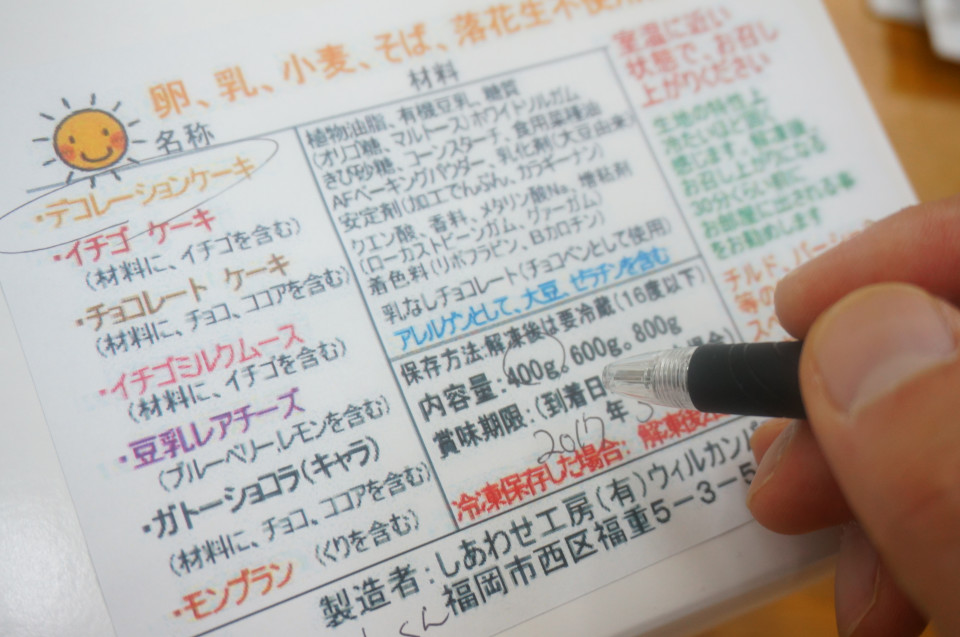 卵、乳、小麦、そば、落花生不使用
名称
・デコレーションケーキ
・イチゴ ケーキ
(材料に、イチゴを含む)
・チョコレート ケーキ
(材料に、チョコ、ココアを含む)
・イチゴミルクムース
(材料に、イチゴを含む)
・豆乳レアチーズ
(ブルーベリー,レモンを含む)
・ガトーショコラ(キャラ)
(材料に、チョコ、ココアを含む)
・モンブラン (くりを含む)
材料
植物油脂、有機豆乳、糖質
(オリゴ糖、マルトース)ホワイトソルガム
きび砂糖、コーンスターチ、食用菜種油
AFベーキングパウダー、乳化剤(大豆由来)
安定剤(加工でんぷん、カラギーナン)
クエン酸、香料、メタリン酸Na、増粘剤
(ローカストビーンガム、グァーガム)
着色料(リボフラビン、Bカロチン)
乳なしチョコレート(チョコペンとして使用)
アレルゲンとして、大豆、ゼラチンを含む
保存方法:解凍後は要冷蔵(16度以下)
内容量:400g。600g。800g
賞味期限:(到着日
2017年
冷凍保存した場合: 解凍後
製造者:しあわせ工房(有)ウィルカンパ
福岡市西区福重5-3-5
室温に近い
状態で、お召し
上がりください
生地の特性上
冷たいほど固く
感じます。解凍後、
お召し上がりになる
30分くらい前に
お部屋に出される事
をお勧めします
チルド、
等の